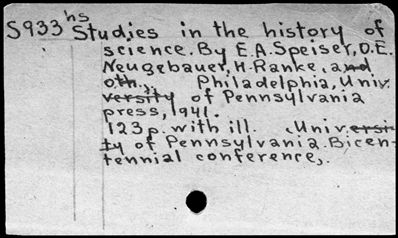 S933hs Studies in the history of
science. By E.A. Speiser, O.E.
Neugebauer, H. Ranke, and
oth. Philadelphia, Univ.
versity of Pennsylvania
press, 1941.
123p. with ill. (Universi
ty of Pennsylvania. Bicen-
tennial conference).